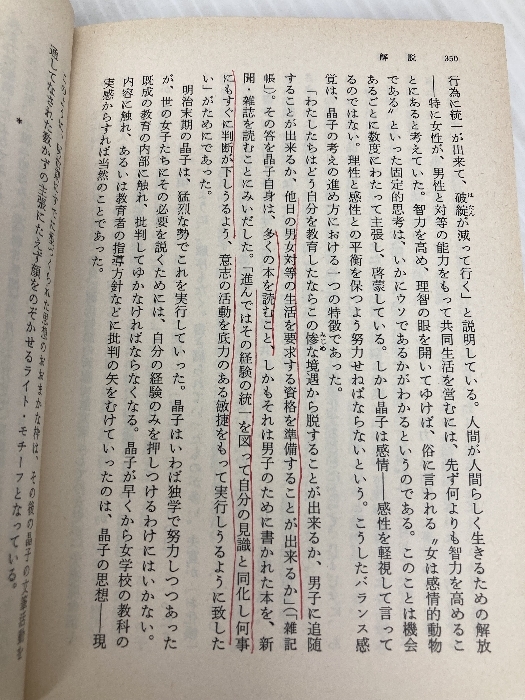 解説　350
行為に統一が出来て、破綻が減って行く」と説明している。人間が人間らしく生きるための解放
――特に女性が、男性と対等の能力をもって共同生活を営むには、先ず何よりも智力を高めるこ
とにあると考えていた。智力を高め、理智の眼を開いてゆけば、俗に言われる〝女は感情的動物
である〟といった固定的思考は、いかにウソであるかがわかるというのである。このことは機会
あるごとに数度にわたって主張し、啓蒙している。しかし晶子は感情――感性を軽視して言って
るのではない。理性と感性との平衡を保つよう努力せねばならないという。こうしたバランス感
覚は、晶子の考えの進め方における一つの特徴であった。
「わたしたちはどう自分を教育したならこの惨な境遇から脱することが出来るか、男子に追随
することが出来るか、他日の男女対等の生活を要求する資格を準備することが出来るか」（「雑記
帳」）。その答を晶子自身は、多くの本を読むこと、しかもそれは男子のために書かれた本を、新
聞・雑誌を読むことにみいだした。「進んではその経験の統一を図って自分の見識と同化し何事
にもすぐに判断が下しうるよう、意志の活動を底力のある敏捷をもって実行しうるように致した
い」がためにであった。
明治末期の晶子は、猛烈な勢でこれを実行していった。晶子はいわば独学で努力しつつあった
が、世の女子たちにその必要を説くためには、自分の経験のみを押しつけるわけにはいかない。
既成の教育の内部に触れ、批判してゆかなければならなくなる。晶子が早くから女学校の教科の
内容に触れ、あるいは教育者の指導方針などに批判の矢をむけていったのは、晶子の思想――現
実感からすれば当然のことであった。
＊
思想のおおまかな枠は、その後の晶子の文筆活動を
通してなされた数かずの主張にたえず顔をのぞかせるライト・モチーフとなっている。